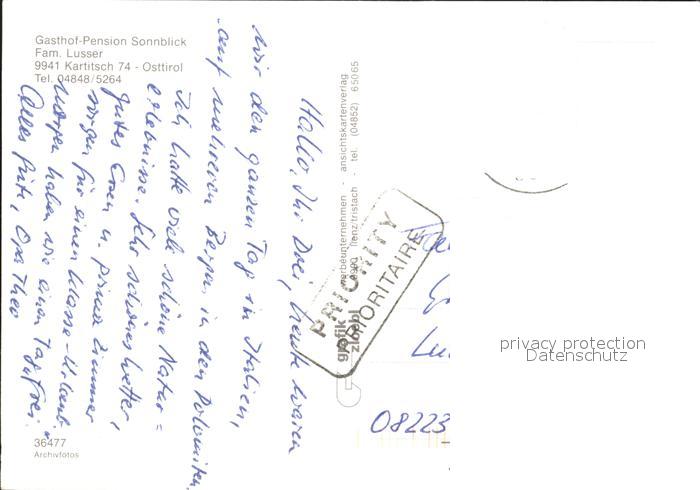 Gasthof-Pension Sonnblick
Fam. Lusser
9941 Kartitsch 74 - Osttirol
Tel. 04848/5264
Hallo, Ihr Drei, heute waren
wir den ganzen Tag in Italien,
auf mehreren Bergen in den Dolomiten.
Ich hatte viele schöne Natur=
erlebnisse. Sehr schönes Wetter,
gutes Essen u. prima Zimmer
sorgen für einen klasse-Urlaub.
Morgen haben wir einen Tag "frei".
Alles Gute, Opa Theo
36477
Archivfotos
grafik zloebl
werbeunternehmen - ansichtskartenverlag
9900 lienz/tristach - tel. (04852) 65065
PRIORITY
PRIORITAIRE
08223
privacy protection
Datenschutz